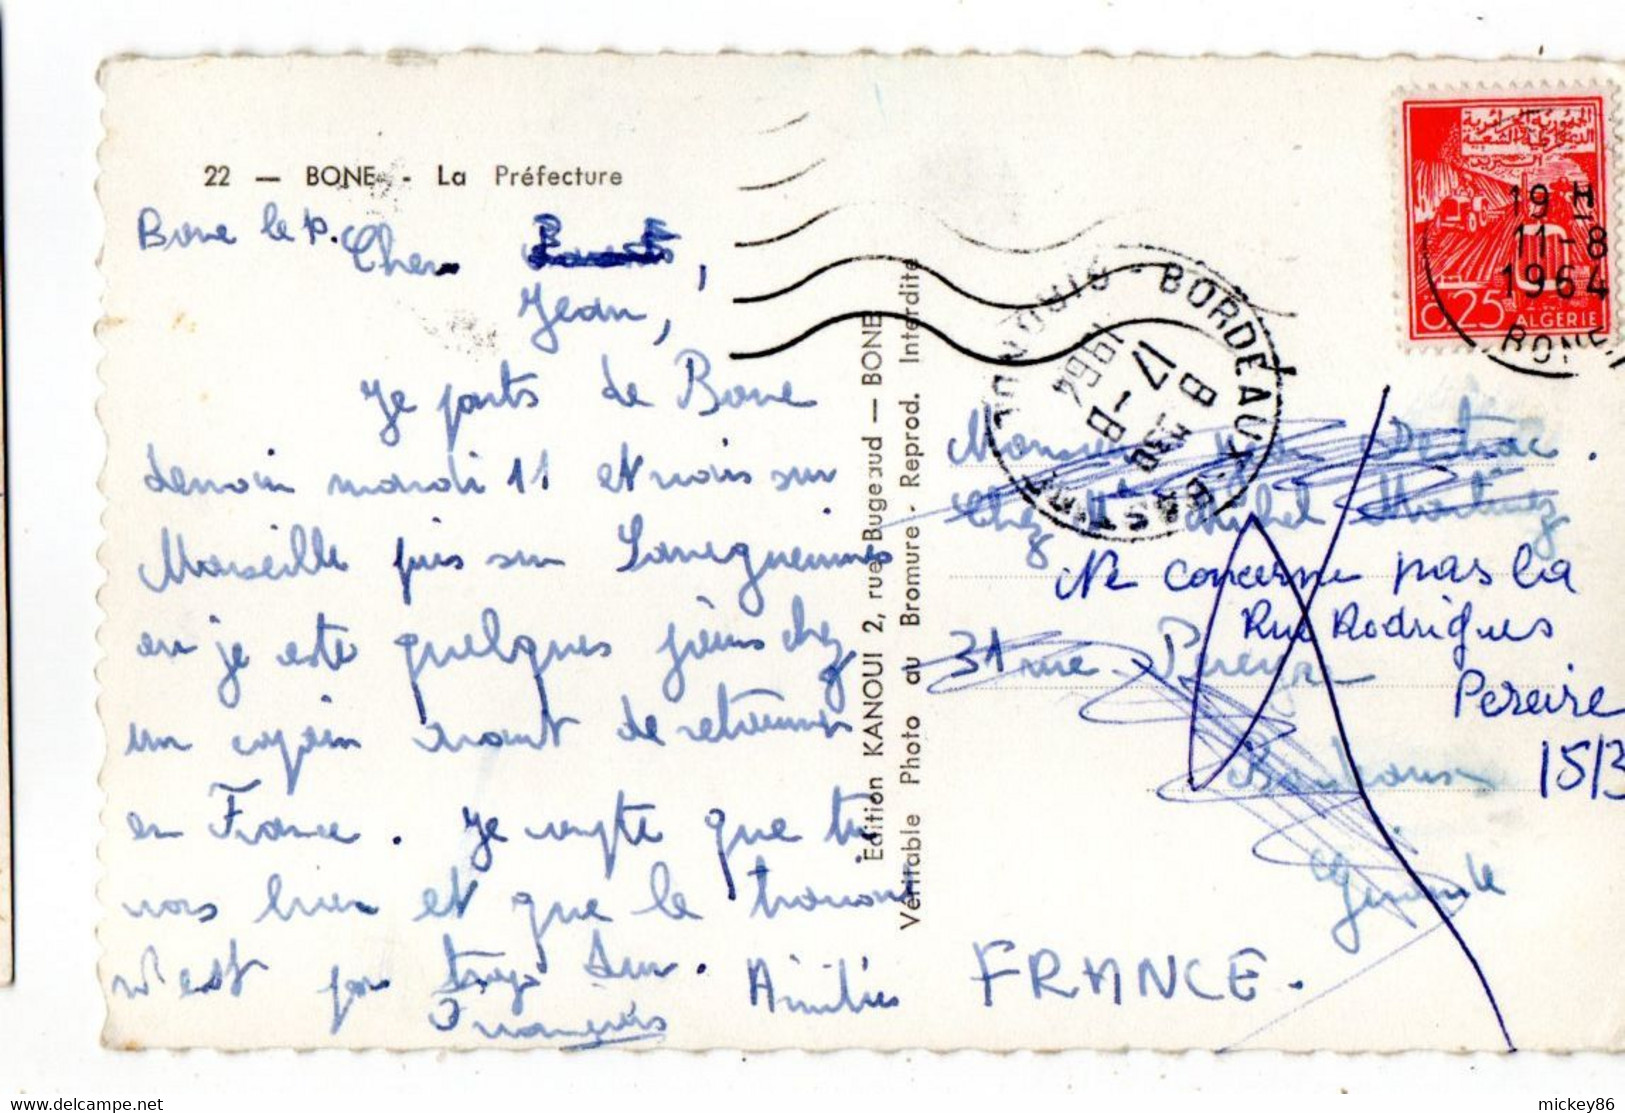 22 — BONE - La Préfecture
Bone le
Cher
Jean,
Je parts de Bone
demain mardi 11 et vais sur
Marseille puis sur
ou je reste quelques jours chez
un copain avant de retourner
en France. Je compte que tu
vas bien et que le travail
n'est pas trop dur. Amitiés
François
Edition KANOUI 2, rue Bugeaud — BONE
Véritable Photo au Bromure - Reprod. Interdite
الجمهورية الجزائرية
الديمقراطية الشعبية
البريد
0,25
ALGERIE
19 H
11-8
1964
BONE
BORDEAUX - BASTIDE
GIRONDE
17 - 8
1964
Monsieur Jean
Chez Mr Michel Martinez
31 rue Pereyre
Bordeaux
Gironde
FRANCE.
Ne concerne pas la
Rue Rodrigues
Pereire
15/3
mickey86
www.delcampe.net